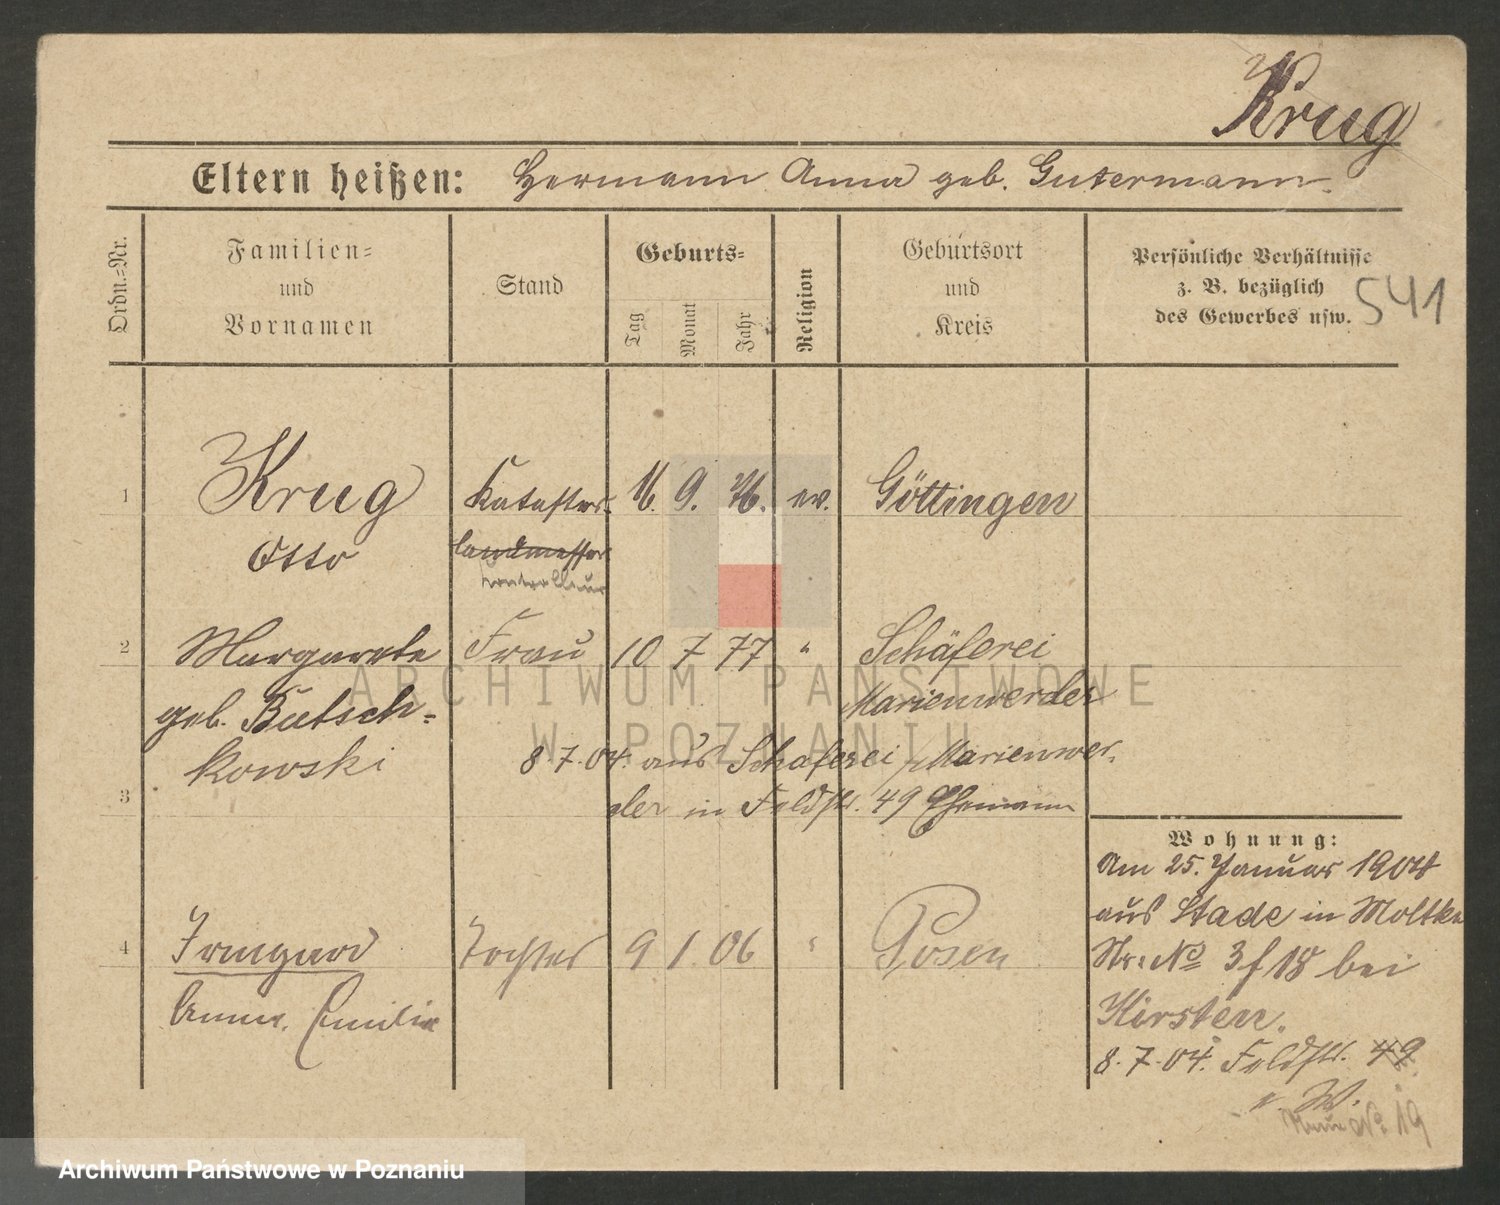 Krug
Eltern heißen: Hermann Anna geb. Gutermann.
Ordn.=Nr.
Familien=
und
Vornamen
Stand
Geburts=
Tag
Monat
Jahr
Religion
Geburtsort
und
Kreis
Persönliche Verhältnisse
z. B. bezüglich
des Gewerbes usw.
541
1
Krug
Otto
Kataster-
landmesser
kontrolleur
16. 9. 76. ev. Göttingen
2
Margarete
geb. Butsch-
kowski
Frau 10 7 77 "
Schäferei
Marienwerder
8.7.04. aus Schäferei / Marienwer.
der in Feldstr. 49 Ehemann
3
4
Irmgard
Anna, Emilie
Tochter 9 1 06 " Posen
Wohnung:
Am 25. Januar 1904
aus Stade in Moltke
Str. No 3 f 18 bei
Kirsten.
8.7.04. Feldstr. 49
v. W.
No 19
ARCHIWUM PAŃSTWOWE
W POZNANIU
Archiwum Państwowe w Poznaniu